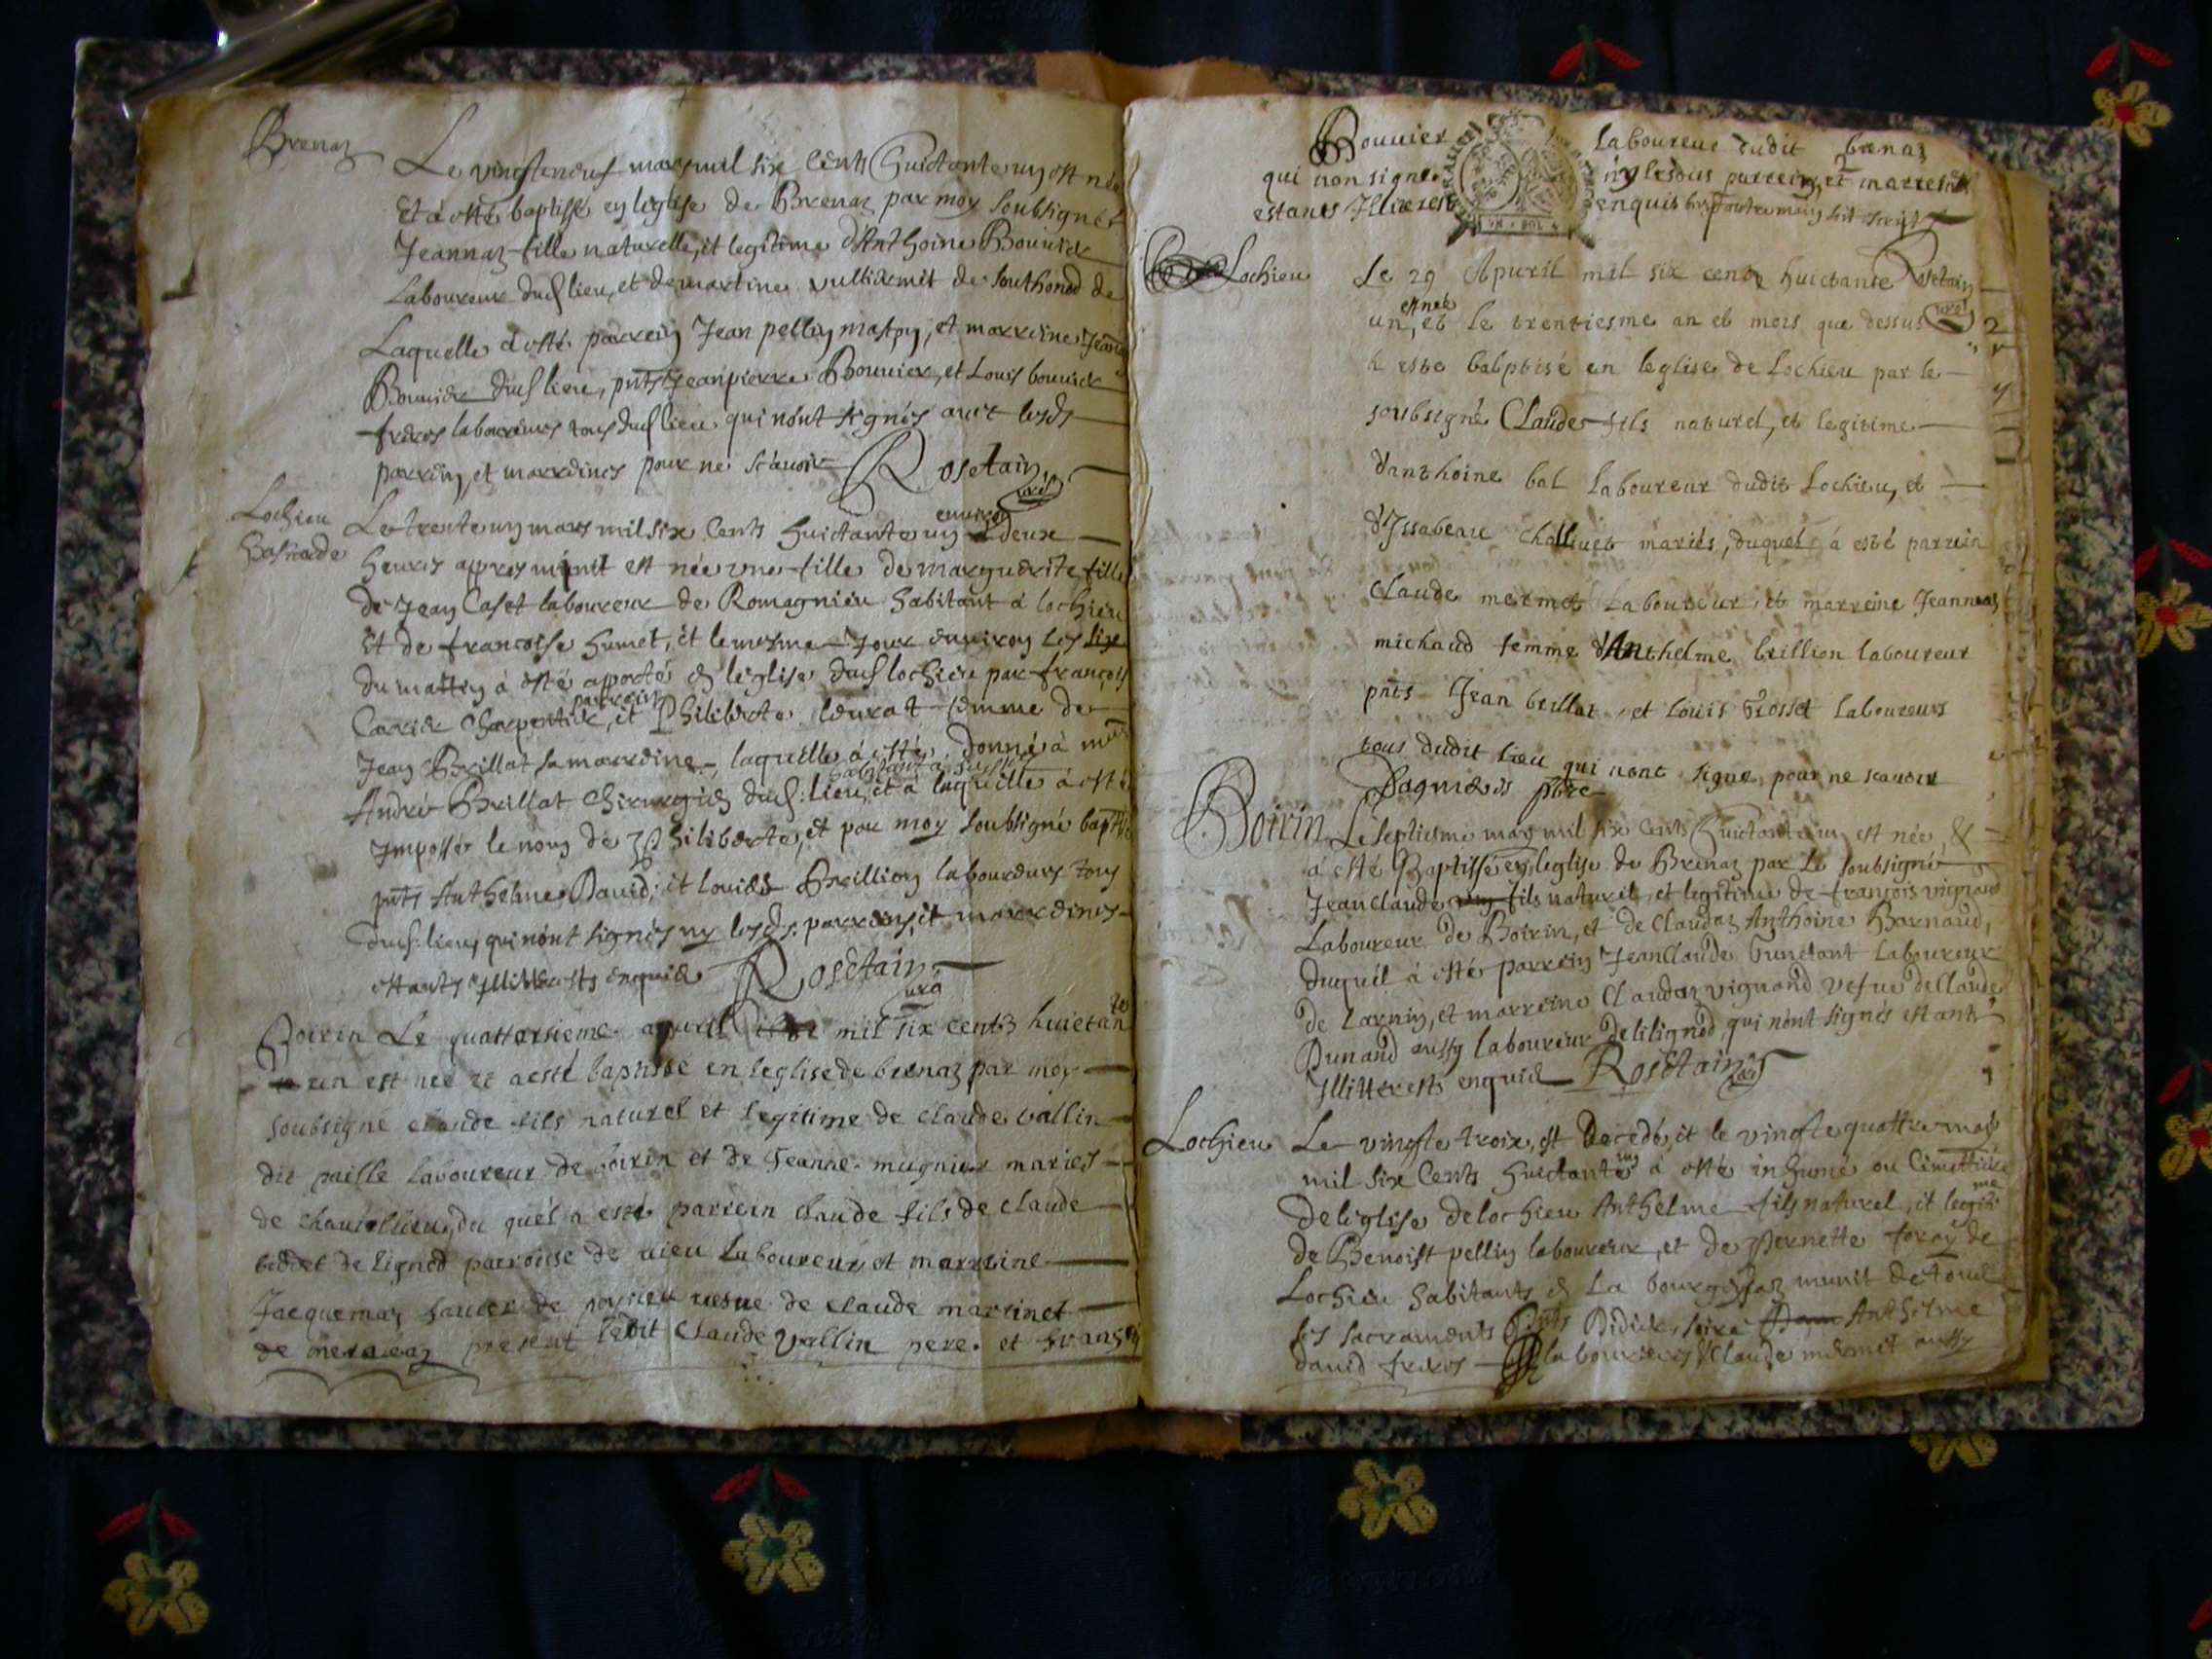 Brenaz
Le vingteneuf mars mil six Cents huictante ung est née
Et à esté baptissé en leglise de Brenaz par moy soubsigné
Jeannaz fille naturelle, et legitime d'Anthoine Bouvier
Laboureur dud lieu, et de martine vulliermet de de
Laquelle à esté parrein Jean pellin masson, et marreine
Bouvier dud lieu, pnts Jeanpierre Bouvier, et Louis bouvier
freres laboureurs tous dud lieu qui nont signés avec lesds
parrein, et marreines pour ne scavoir Rosetain
curé
Lochieu
bastarde
Le trente ung mars mil six Cents huictante ung environ deux
heures apres minuit est née une fille de marguerite fille
de Jean Caset laboureur de Romagnieu habitant à lochieu
Et de francoise humet, et le mesme Jour environ les six
du mattin à esté apporté en leglise dud lochieu par françois
Carrier Charpentier parrein, et Philiberte femme de
Jean Brillat sa marreine, laquelle à esté donné à
André Brillat Chirurgien dud: lieu, et à laquelle à esté
Impossé le nom de Philiberte, et par moy soubsigné
pnts Anthelme David, et Brillion laboureurs tous
dud: lieu, qui nont signés ny lesds: parreins, et marreines
estants Illitterests enquis Rosetain
curé
Boirin Le quattorsieme apvril mil six cents huictante
un est née et a esté baptissé en leglise de brenaz par moy
soubsigné claude fils naturel et legitime de claude vallin
dit paille laboureur de boirin et de Jeanne mugnier mariés
de du quel a esté parrein claude fils de claude
de lignod parroisse de vieu laboureur et marreine
Jacquemaz de vesve de claude martinet
present ledit Claude vallin pere. et
Bouvier laboureur dudit brenaz
qui non signé ny lesdits parrein, et marreine
estants Illiterest enquis
Lochieu
Le 29 Apvril mil six cents huictante Rosetain
curé
un, est née et le trentiesme an et mois que dessus
a esté balptisé en leglise de Lochieu par le
soubsigné Claude fils naturel, et legitime
d'anthoine bal laboureur dudit Lochieu, et
d'Issabeau mariés, duquel à esté parrein
Claude mermet Laboureur, et marreine Jeannaz
michaud femme d'Anthelme brillion laboureur
pnts Jean brillat, et Louis Laboureurs
tous dudit lieu qui nont signé pour ne scavoir
pbre
Boirin Le septiesme may mil six Cents huictante ung est née, &
à esté Baptissé en leglise de Brenaz par Le soubsigné
Jeanclaude fils naturel, et legitime de françois vignand
Laboureur de Boirin, et de Claudaz Anthoine Barnaud,
duquel à esté parrein Jeanclaude Laboureur
de Larnin, et marreine Claudaz vignand vesue de Claude
Dunand aussy laboureur de lilignod, qui nont signés estants
Illitterests enquis Rosetain
curé
Lochieu Le vingte troix, est Decedé, et le vingte quattre may
mil six Cents huictante ung à esté inhumé au Cimettiere
de leglise de lochieu Anthelme fils naturel, et legitime
de Benoist pellin laboureur, et de pernette foray de
Lochieu habitants en La munit de tous
les sacraments pnts Didier, Anthelme
david freres laboureurs Claude mermet aussy